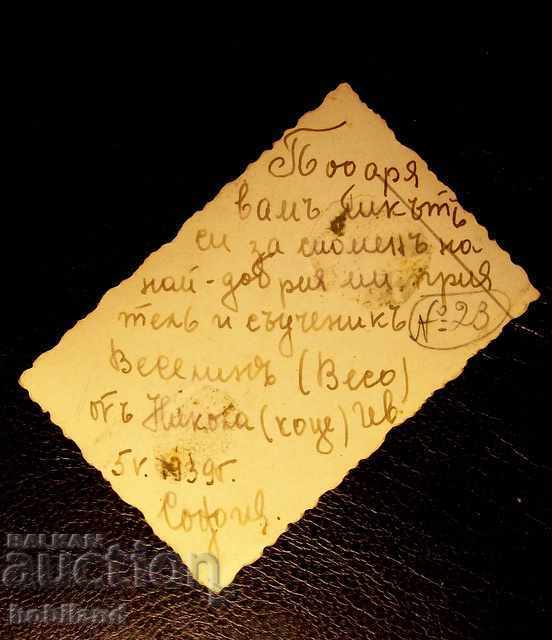 Подаря
вамъ ликътъ
си за споменъ на
най-добрия ми прия
тель и съученикъ
№ 23
Веселинъ (Весо)
отъ Никола (коце) Чев.
5 V. 1939г.
София.
BALKAN
auction
hobiland